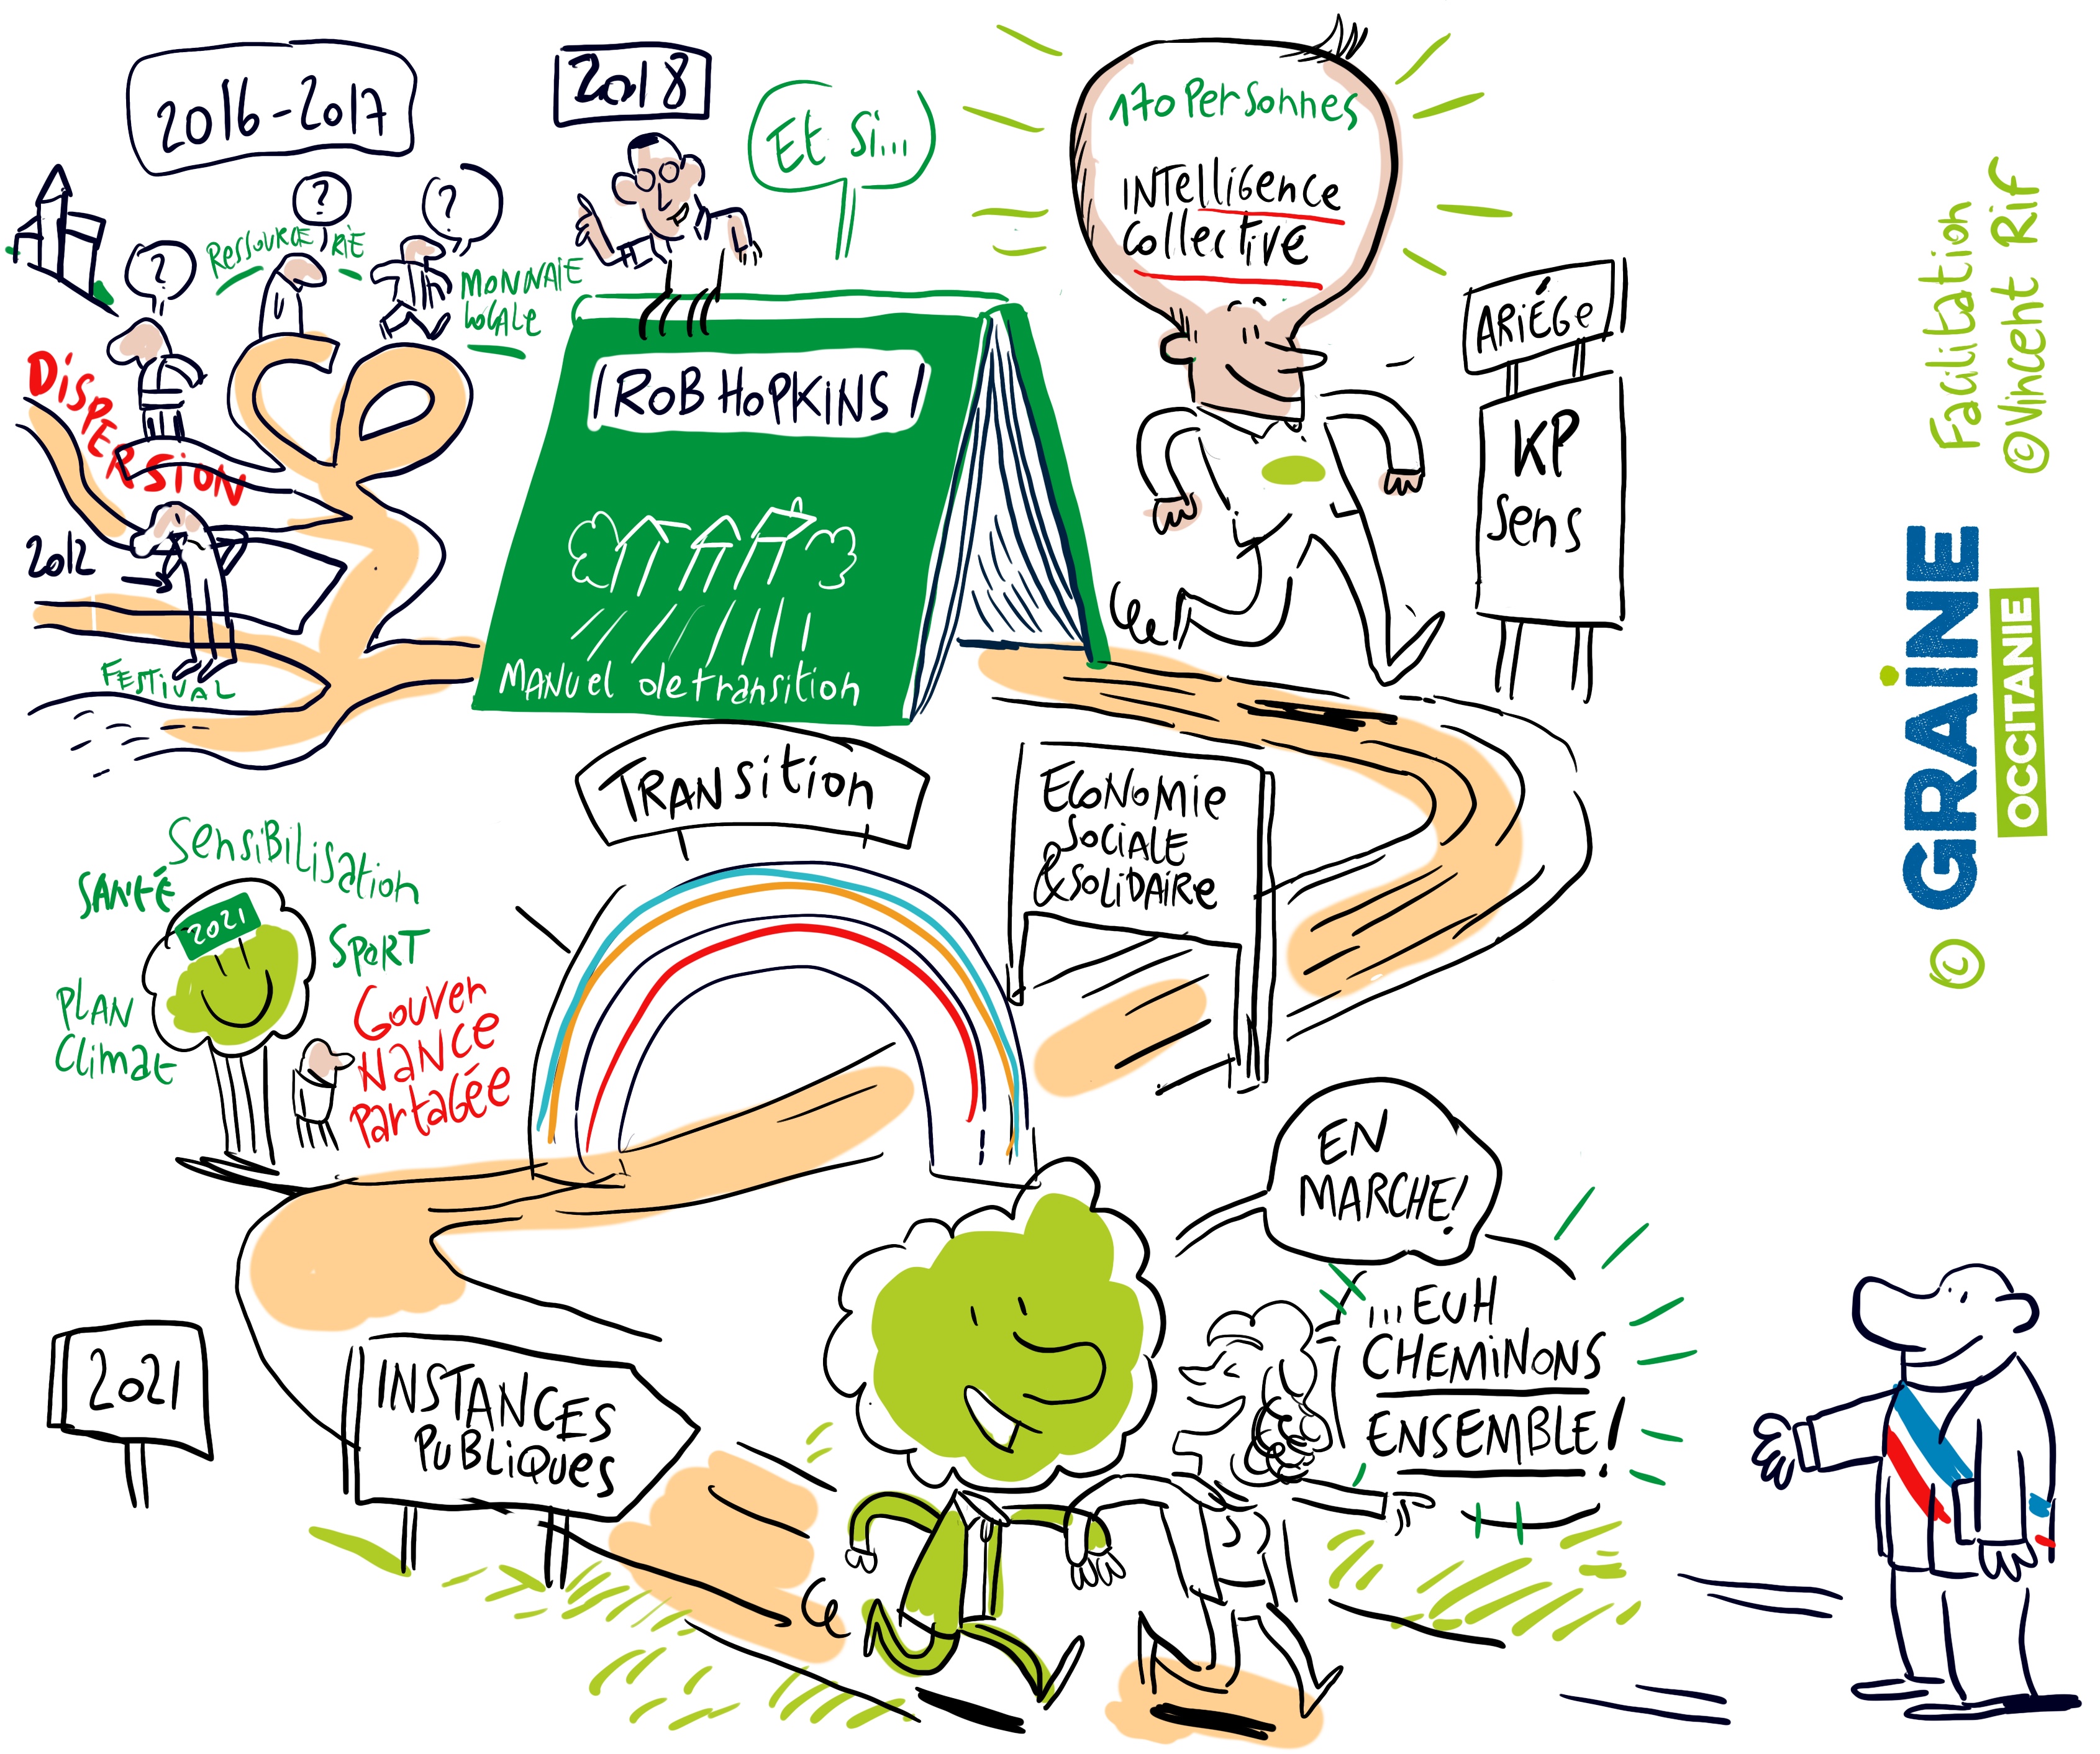 2016-2017
2018
Et si...
170 Personnes
INtelligence
Collective
?
?
?
RessouRCE RIE
MONNAIE
locale
DISPERSION
2012
FESTIVAL
ROB HOPKINS
MANuel de transition
ARIÉGe
KP
Sens
Facilitation
©Vincent Rif
© GRAiNE
OCCITANIE
TRANsition
ECONOMie
SOCiALE
&SOLiDAiRe
SensiBilisation
SANTÉ
2021
SPORT
PLAN
Climat
Gouver
NANCe
PartaGée
EN
MARCHE!
...EUH
CHEMiNONS
ENSEMBLE!
2021
INSTANCES
PUBLiQUES